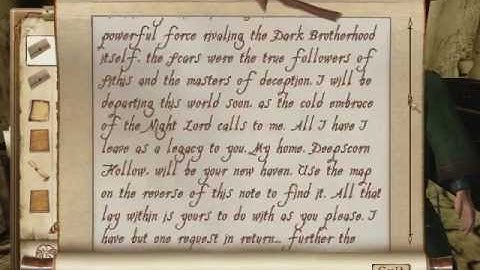 powerful force rivaling the Dark Brotherhood
itself, the Scars were the true followers of
Sithis and the masters of deception. I will be
departing this world soon, as the cold embrace
of the Night Lord calls to me. All I have I
leave as a legacy to you. My home, Deepscorn
Hollow, will be your new haven. Use the map
on the reverse of this note to find it. All that
lay within is yours to do with as you please. I
have but one request in return... further the
Exit